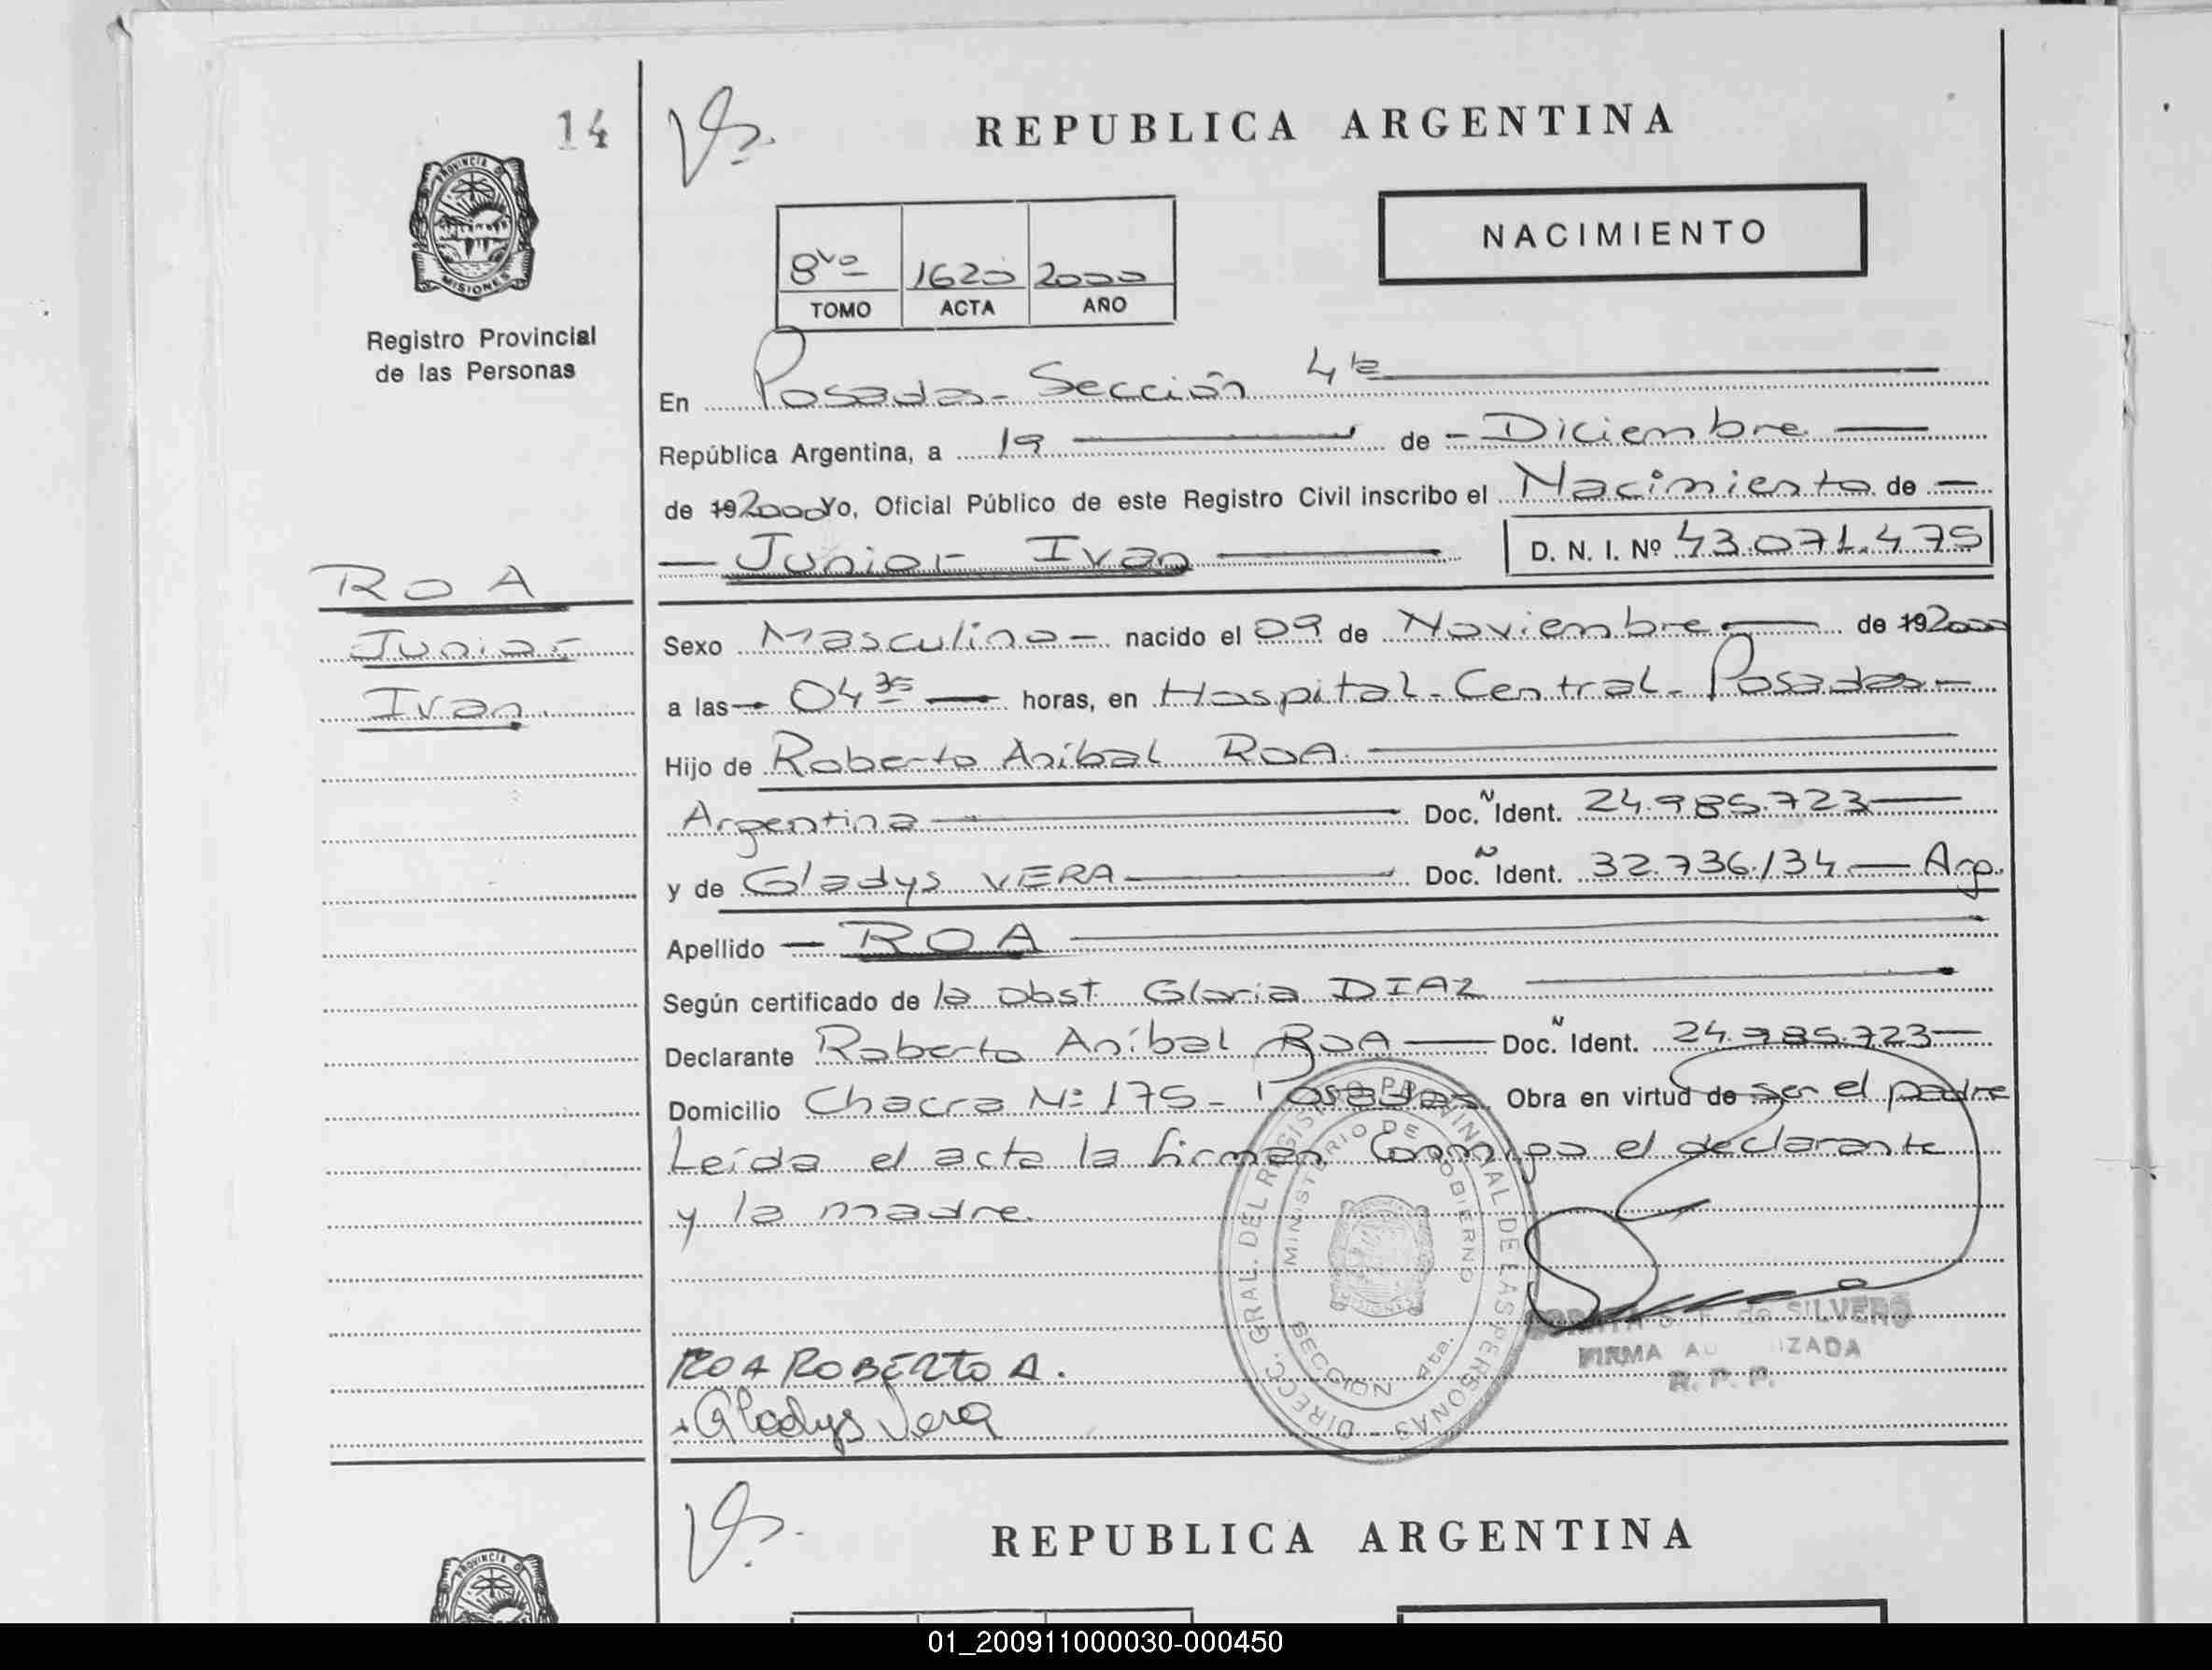 14
REPUBLICA ARGENTINA
PROVINCIA DE
MISIONES
Registro Provincial
de las Personas
NACIMIENTO
8vo 1620 2000
TOMO ACTA AÑO
En Posadas - Sección 4ta
República Argentina, a 19 de - Diciembre
de 192000 Yo, Oficial Público de este Registro Civil inscribo el Nacimiento de
Junior Ivan D. N. I. Nº 43.071.475
ROA
Junior
Ivan
Sexo Masculino - nacido el 09 de Noviembre de 192000
a las 04 35 horas, en Hospital - Central - Posadas -
Hijo de Roberto Aníbal ROA
Argentina Doc. N Ident. 24.985.723
y de Gladys VERA Doc. N Ident. 32.736.134 - Arg.
Apellido - ROA
Según certificado de la obst. Gloria DIAZ
Declarante Roberto Aníbal ROA Doc. N Ident. 24.985.723
Domicilio Chacra Nº 175 - Posadas Obra en virtud de ser el padre
Leída el acta la firman conmigo el declarante
y la madre.
DIRECC. GRAL. DEL REGISTRO PROVINCIAL DE LAS PERSONAS
MINISTERIO DE GOBIERNO
SECCION 4ta.
de SILVERO
FIRMA AU IZADA
R. P. P.
ROA ROBERTO A.
Gladys Vera
REPUBLICA ARGENTINA
PROVINCIA DE
01_200911000030-000450